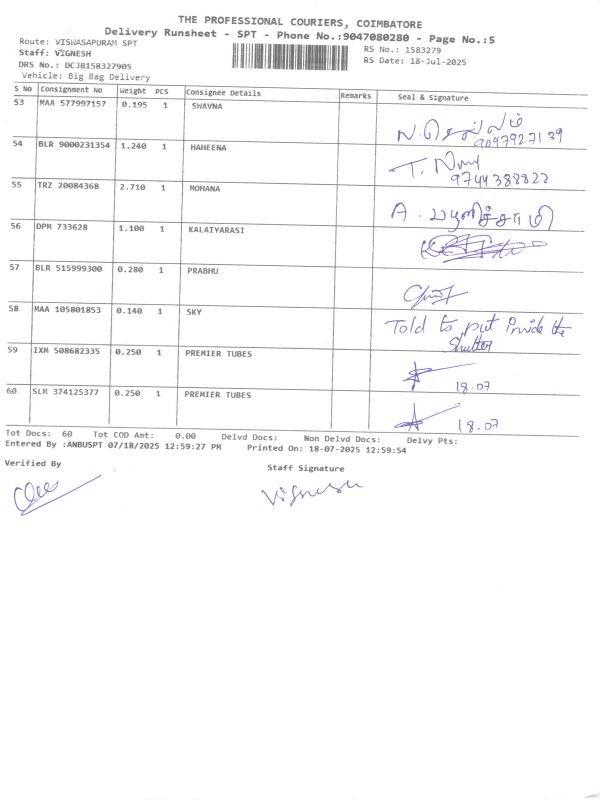 THE PROFESSIONAL COURIERS, COIMBATORE
Delivery Runsheet - SPT - Phone No.:9047080280 - Page No.:5
Route: VISWASAPURAM SPT
RS No.: 1583279
Staff: VIGNESH
RS Date: 18-Jul-2025
DRS No.: DCJB158327905
Vehicle: Big Bag Delivery
S No Consignment No Weight PCS Consignee Details Remarks Seal & Signature
53 MAA 577997157 0.195 1 SHAVNA
N. செல்லம்
9047927139
54 BLR 9000231354 1.240 1 HAHEENA
9744388822
55 TRZ 20084368 2.710 1 MOHANA
A. பழனிச்சாமி
56 DPM 733628 1.100 1 KALAIYARASI
57 BLR 515999300 0.280 1 PRABHU
58 MAA 105801853 0.140 1 SKY
Told to put inside the
Shutter
59 IXM 508682335 0.250 1 PREMIER TUBES
18.07
60 SLM 374125377 0.250 1 PREMIER TUBES
18.07
Tot Docs: 60 Tot COD Amt: 0.00 Delvd Docs: Non Delvd Docs: Delvy Pts:
Entered By :ANBUSPT 07/18/2025 12:59:27 PM Printed On: 18-07-2025 12:59:54
Verified By
Staff Signature
Vignesh